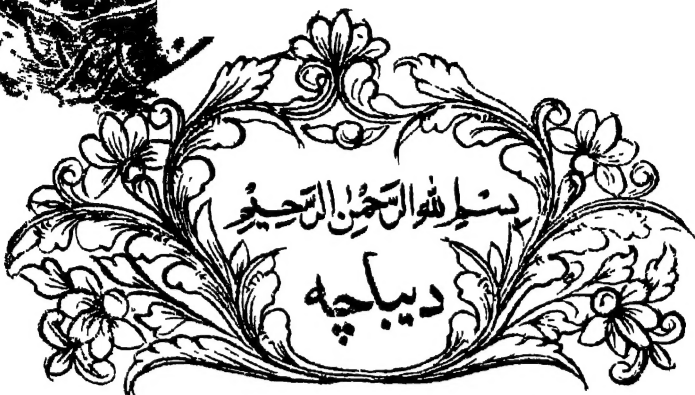 بسم الله الرحمن الرحيم
دیباچہ